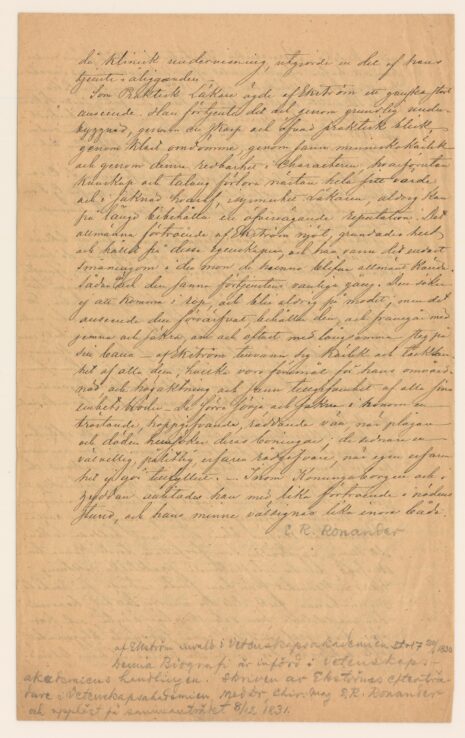 då klinisk undervisning, utgjorde en del af hans
tjenste-åligganden.
Som Praktisk Läkare ägde af Ekström ett ganska stort
anseende. Han förtjente det väl genom grundlig under-
byggnad, genom en skarp och öfvad praktisk blick
genom klart omdömme, genom sann menniskokärlek
och genom denna redbarhet i Characteren, hvarförutan
kunskap och talang förlora nästan hela sitt värde
och i saknad hvaraf, isynnerhet Läkaren, aldrig kan
på längd bibehålla en öfvervägande reputation. Det
allmänna förtroende af Ekström njöt, grundades helt
och hållet på dessa egenskaper, och han vann det endast
småningom i den mon de hunno blifva allmänt kände.
Sådan är den sanna förtjenstens vanliga gång. Den söker
ej att komma i rop, och blir aldrig på modet; men det
anseende den förvärfvat, behåller den, och framgår med
jemna och säkra, om och oftast med långsamma steg på
sin bana – af Ekström tillvann sig kärlek och tacksam-
het af alla dem, hvilka voro föremål för hans omvård-
nad och högaktning och sann tillgifvenhet af alla sina
embetsbröder. De förre sörja och sakna i honom en
tröstande, hoppgifvande, räddande vän, när plågan
och döden hemsöken deras boningar, de sednare en
välvillig, pålitlig, erfaren rådgifvare, när egen erfaren-
het ej gör tillfyllest. – Inom Konungaborgen och i
kojan anlitades han med lika förtroende i nödens
stund, och hans minne välsignas lika inom båda.
E. R. Ronander
af Ekström invald i Vetenskapsakademien 1830
denna Biografi är införd i Vetenskaps-
akademiens handlingar. Skriven av Ekströms efterträ-
dare i Vetenskapsakademien Med Dr Chir. Mag E.R. Ronander
och uppläst på sammanträdet 8/12 1831.